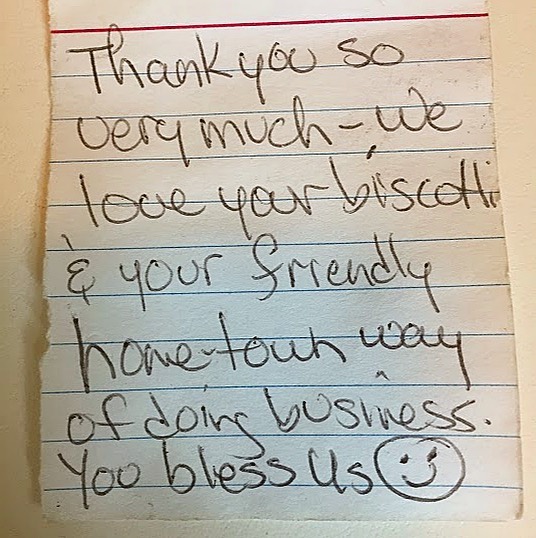 Thank you so
very much - we
love your biscotti
& your friendly
home-town way
of doing business.
You bless us